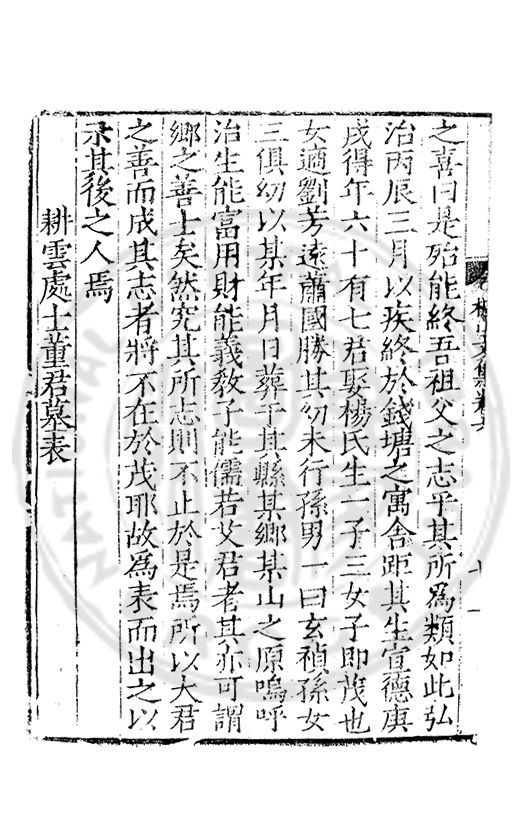 之喜曰是殆能終吾祖父之志乎其所爲類如此弘
治丙辰三月以疾終於錢塘之寓舍距其生宣德庚
戌得年六十有七君娶楊氏生一子三女子即茂也
女適劉芳遠蕭國勝其幼未行孫男一曰玄禎孫女
三俱幼以某年月日葬于其縣某鄉某山之原嗚呼
治生能富用財能義教子能儒若艾君者其亦可謂
鄉之善士矣然究其所志則不止於是焉所以大君
之善而成其志者將不在於茂耶故爲表而出之以
示其後之人焉
耕雲處士董君墓表